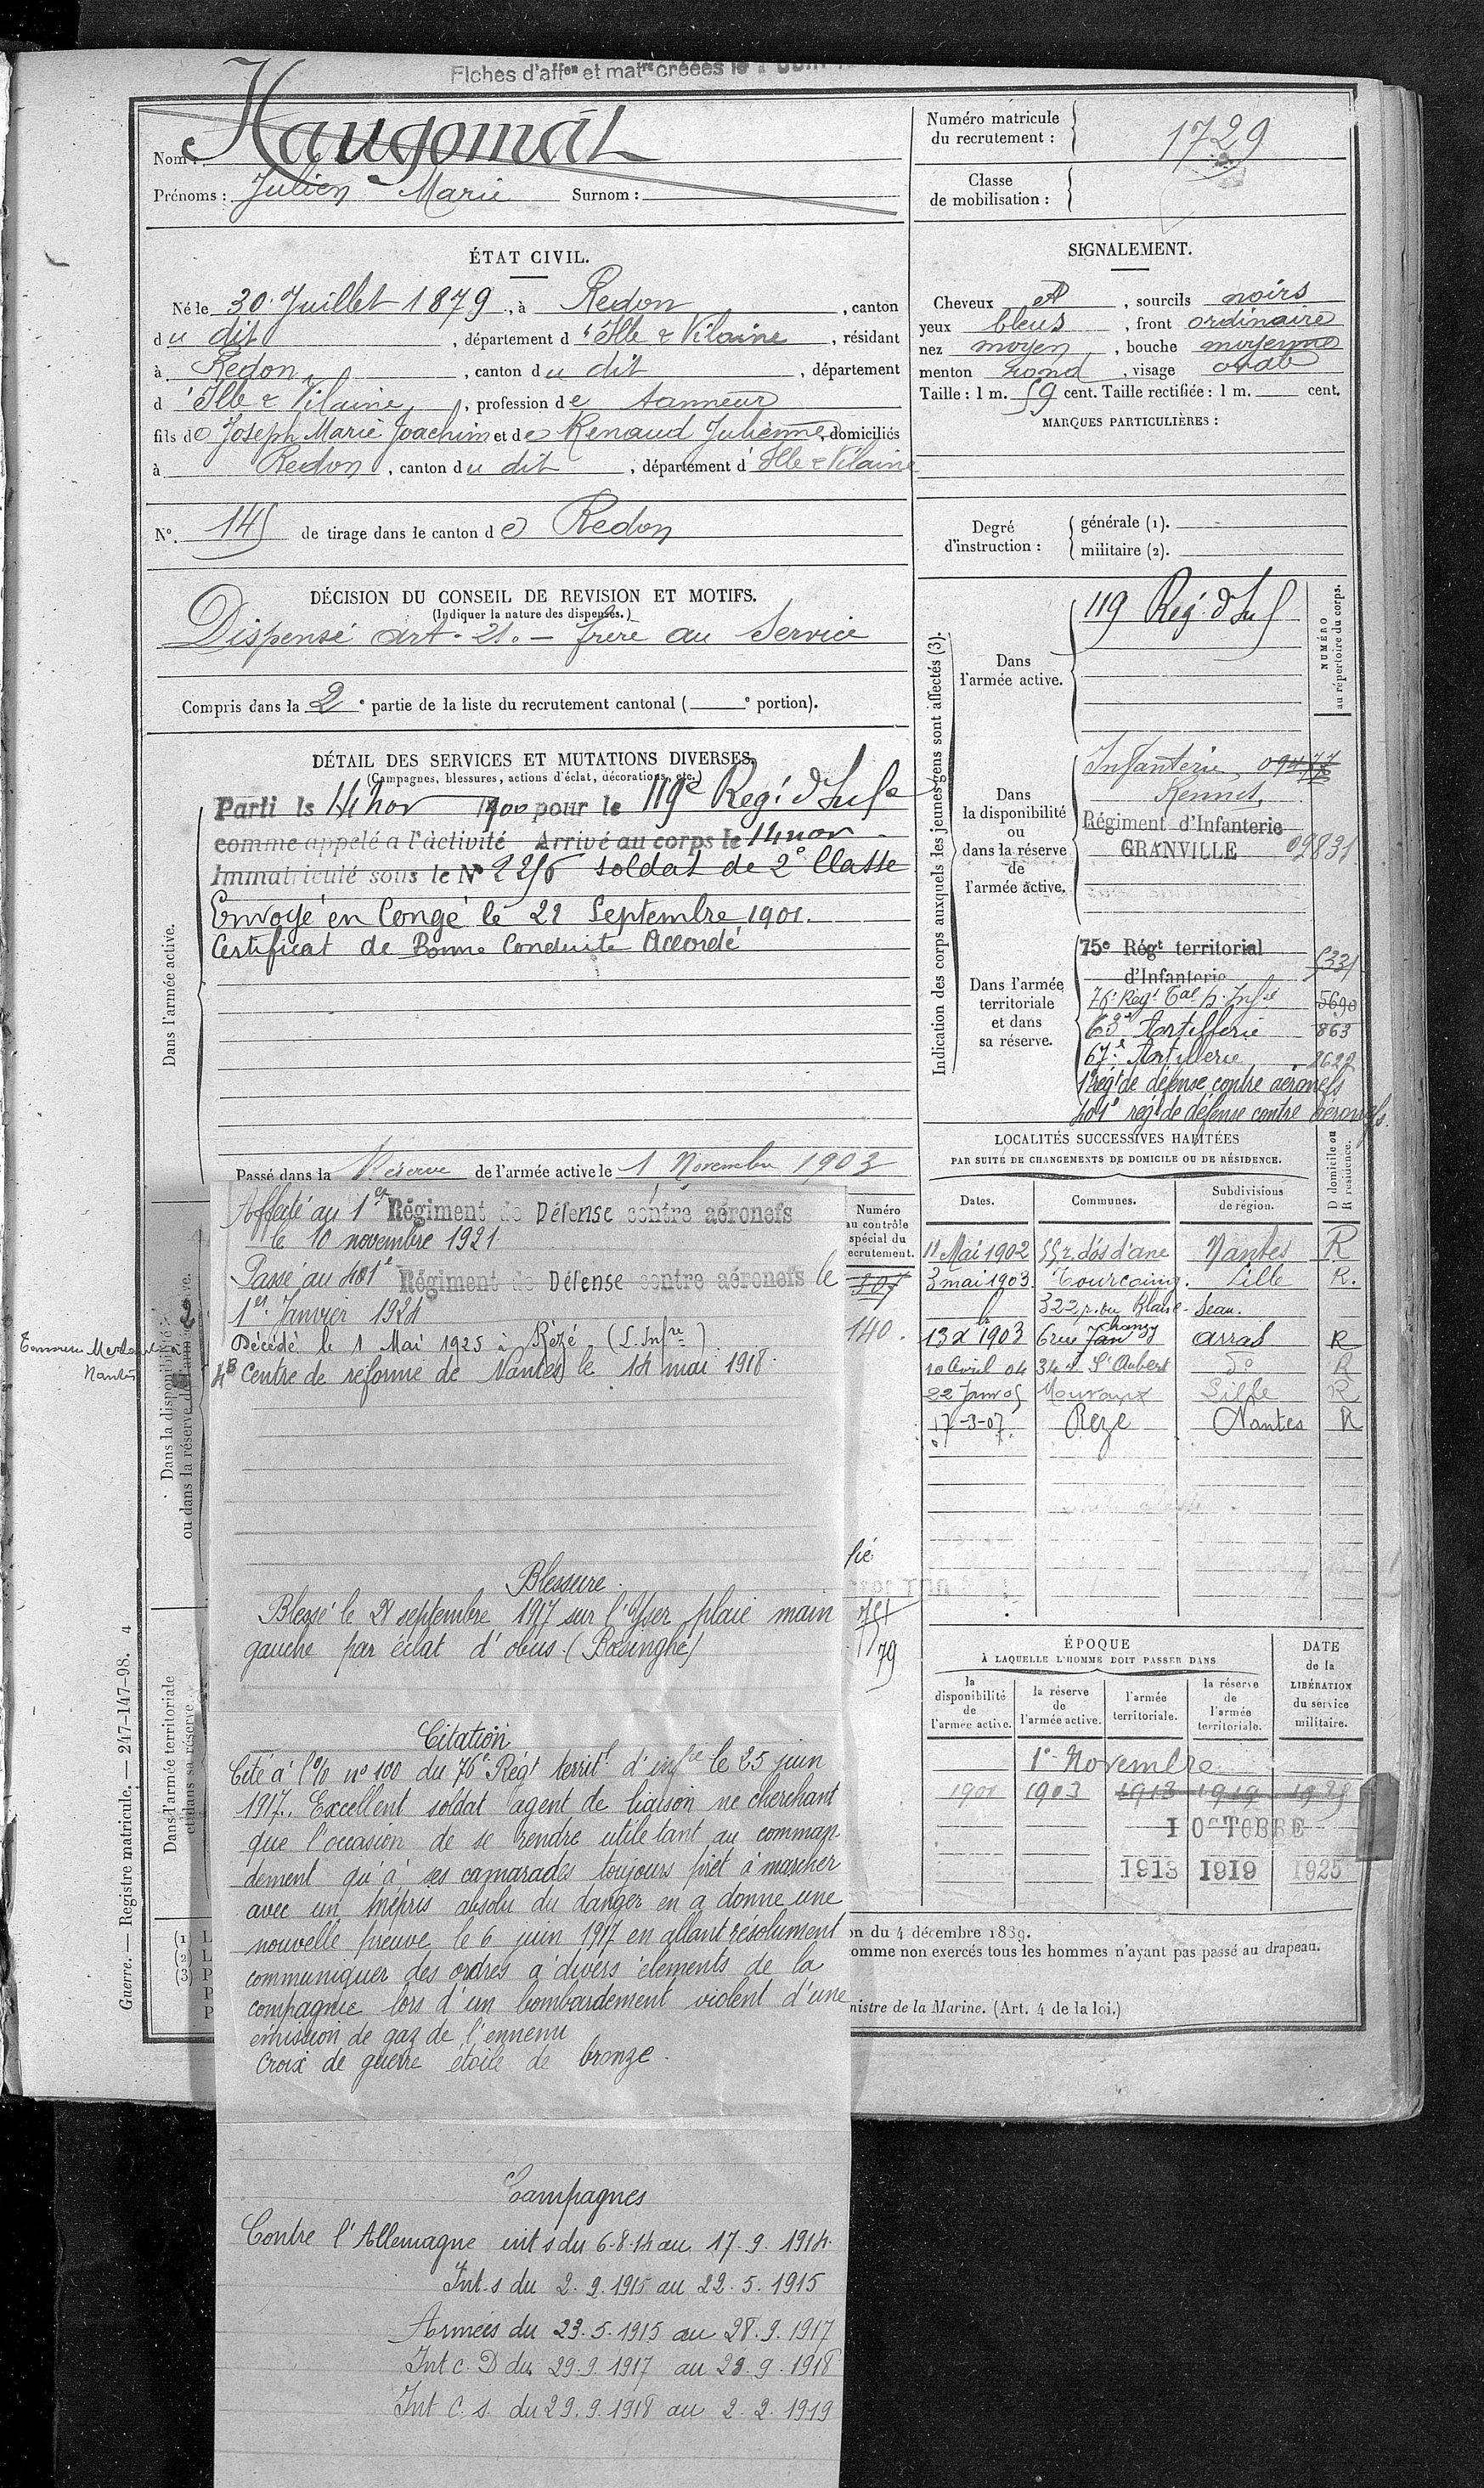 Fiches d'affon et matre créées le
Nom : Haugomat
Prénoms : Julien Marie Surnom :
Numéro matricule
du recrutement : 1729
Classe
de mobilisation :
ÉTAT CIVIL.
Né le 30 Juillet 1879, à Redon, canton
du dit, département d'Ille & Vilaine, résidant
à Redon, canton du dit, département
d'Ille & Vilaine, profession de tanneur
fils de Joseph Marie Joachim et de Renaud Julienne, domiciliés
à Redon, canton du dit, département d'Ille & Vilaine
SIGNALEMENT.
Cheveux et, sourcils noirs
yeux bleus, front ordinaire
nez moyen, bouche moyenne
menton rond, visage ovale
Taille : 1 m. 59 cent. Taille rectifiée : 1 m. cent.
MARQUES PARTICULIÈRES :
N° 145 de tirage dans le canton de Redon
Degré
d'instruction :
générale (1).
militaire (2).
DÉCISION DU CONSEIL DE REVISION ET MOTIFS.
(Indiquer la nature des dispenses.)
Dispensé art. 21. — frère au Service
Compris dans la 2e partie de la liste du recrutement cantonal ( e portion).
DÉTAIL DES SERVICES ET MUTATIONS DIVERSES.
(Campagnes, blessures, actions d'éclat, décorations, etc.)
Dans l'armée active.
Parti le 14 nov 1900 pour le 119e Reg. d'Infie
comme appelé a l'activité Arrivé au corps le 14 nov
Immatriculé sous le N° soldat de 2e Classe
Envoyé en Congé le 22 Septembre 1901.
Certificat de Bonne Conduite Accordé
Passé dans la Réserve de l'armée active le 1 Novembre 1903
Indication des corps auxquels les jeunes gens sont affectés (3).
NUMÉRO
au répertoire du corps.
Dans
l'armée active.
119 Reg. d'Inf
Dans
la disponibilité
ou
dans la réserve
de
l'armée active.
Infanterie
Rennes,
Régiment d'Infanterie
GRANVILLE 09831
Dans l'armée
territoriale
et dans
sa réserve.
75e Régt territorial
d'Infanterie 5331
76e Regt Tal d'Infie 5690
63e Artillerie 863
67e Artillerie
1er régt de défense contre aéronefs
401e régt de défense contre aéronefs.
LOCALITÉS SUCCESSIVES HABITÉES
PAR SUITE DE CHANGEMENTS DE DOMICILE OU DE RÉSIDENCE.
Dates. Communes. Subdivisions
de région. D domicile ou
R résidence.
11 Mai 1902 dos d'ane Nantes R
3 mai 1903. Tourcoing. Lille R.
322 r. du Blanc-Seau.
13 X 1903 6 rue Chanzy Arras R
10 Avril 04 34 r. St Aubert do R
22 Janv 05 Mouvaux Lille R
17-3-07 Rezé Nantes R
Numéro
au contrôle
spécial du
recrutement.
140.
Affecté au 1er Régiment de Défense contre aéronefs
le 10 novembre 1921
Passé au 401e Régiment de Défense contre aéronefs le
1er Janvier 1924
Décédé le 1 Mai 1925 à Rézé (L. Infre)
Centre de réforme de Nantes le 14 mai 1918.
Nantes
Dans la disponibilité
ou dans la réserve de l'armée active.
Blessure.
Blessé le 28 septembre 1917 sur l'Yser plaie main
gauche par éclat d'obus. (Boesinghe)
Citation
Cité à l'o/o n° 100 du 76e Régt territl d'infie le 25 juin
1917. Excellent soldat agent de liaison ne cherchant
que l'occasion de se rendre utile tant au comman-
dement qu'à ses camarades toujours prêt à marcher
avec un mépris absolu du danger en a donné une
nouvelle preuve le 6 juin 1917 en allant résolument
communiquer des ordres à divers éléments de la
compagnie lors d'un bombardement violent d'une
émission de gaz de l'ennemi
Croix de guerre étoile de bronze.
Campagnes
Contre l'Allemagne int s du 6.8.14 au 17.9.1914.
Int. s du 2.9.1915 au 22.5.1915
Armées du 23.5.1915 au 28.9.1917
Int c. D du 29.9.1917 au 28.9.1918
Int C. s. du 29.9.1918 au 2.2.1919
ÉPOQUE
À LAQUELLE L'HOMME DOIT PASSER DANS
DATE
de la
LIBÉRATION
du service
militaire.
la
disponibilité
de
l'armée active.
la réserve
de
l'armée active.
l'armée
territoriale.
la réserve
de
l'armée
territoriale.
1er Novembre
1901 1903 1913 1919 1925
1 OCTOBRE
1913 1919 1925
Dans l'armée territoriale
et dans sa réserve
Guerre. — Registre matricule. — 247-147-98. 4
(1) L
(2) L
(3) P
on du 4 décembre 1889.
omme non exercés tous les hommes n'ayant pas passé au drapeau.
nistre de la Marine. (Art. 4 de la loi.)